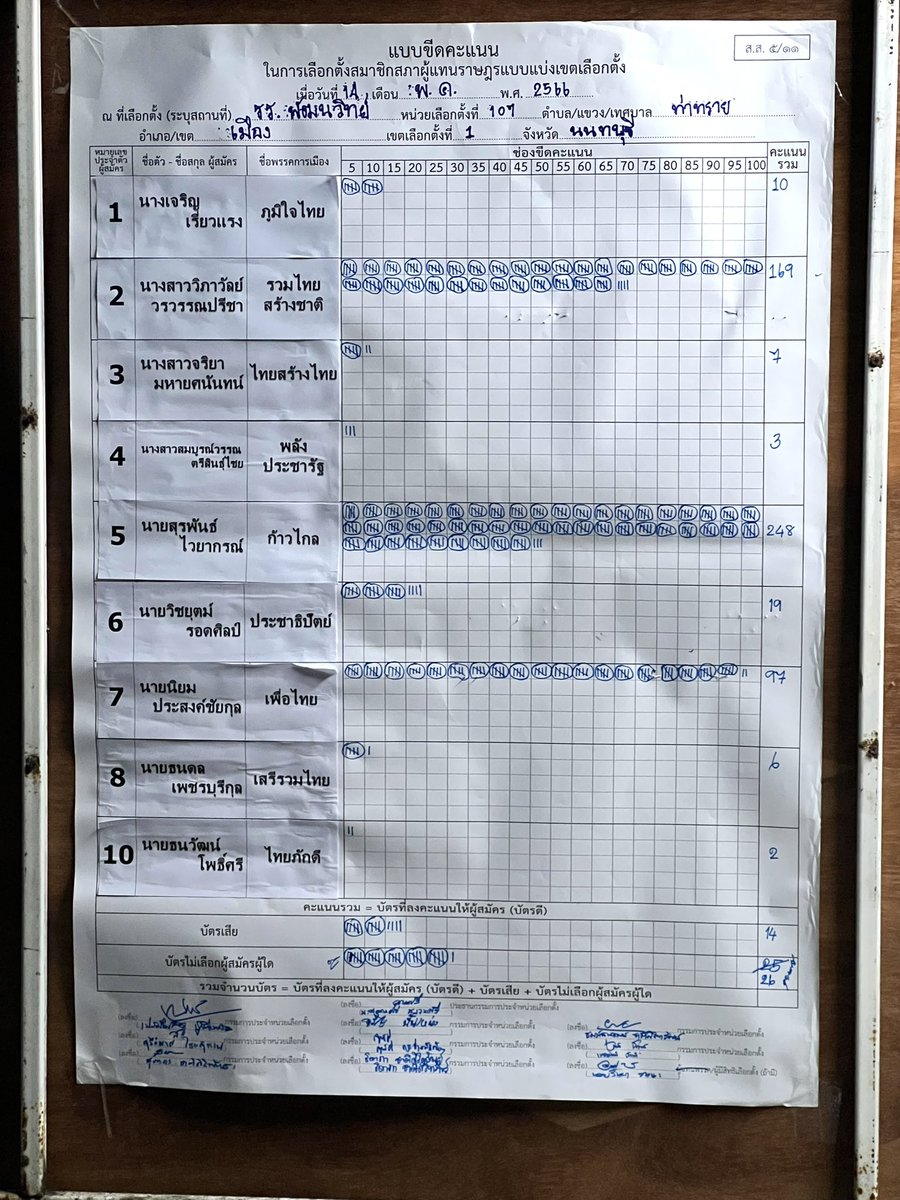 ส.ส. ๕/๑๑
แบบขีดคะแนน
ในการเลือกตั้งสมาชิกสภาผู้แทนราษฎรแบบแบ่งเขตเลือกตั้ง
เมื่อวันที่ 14 เดือน พ.ค. พ.ศ. 2566
ณ ที่เลือกตั้ง (ระบุสถานที่) รร. พัฒนวิทย์ หน่วยเลือกตั้งที่ 107 ตำบล/แขวง/เทศบาล ท่าทราย
อำเภอ/เขต เมือง เขตเลือกตั้งที่ 1 จังหวัด นนทบุรี
หมายเลขประจำตัวผู้สมัคร ชื่อตัว - ชื่อสกุล ผู้สมัคร ชื่อพรรคการเมือง ช่องขีดคะแนน คะแนนรวม
5 10 15 20 25 30 35 40 45 50 55 60 65 70 75 80 85 90 95 100
1 นางเจริญ เรียวแรง ภูมิใจไทย 10
2 นางสาววิภาวัลย์ วรวรรณปรีชา รวมไทยสร้างชาติ 169
3 นางสาวจริยา มหายศนันทน์ ไทยสร้างไทย 7
4 นางสาวสมบูรณ์วรรณ ตรีสินธุ์ไชย พลังประชารัฐ 3
5 นายสุรพันธ์ ไวยากรณ์ ก้าวไกล 248
6 นายวิชยุตม์ รอดศิลป์ ประชาธิปัตย์ 19
7 นายนิยม ประสงค์ชัยกุล เพื่อไทย 97
8 นายธนดล เพชรบุรีกุล เสรีรวมไทย 6
10 นายธนวัฒน์ โพธิ์ศรี ไทยภักดี 2
คะแนนรวม = บัตรที่ลงคะแนนให้ผู้สมัคร (บัตรดี)
บัตรเสีย 14
บัตรไม่เลือกผู้สมัครผู้ใด 25 26
รวมจำนวนบัตร = บัตรที่ลงคะแนนให้ผู้สมัคร (บัตรดี) + บัตรเสีย + บัตรไม่เลือกผู้สมัครผู้ใด
(ลงชื่อ) กรรมการประจำหน่วยเลือกตั้ง (ลงชื่อ) ประธานกรรมการประจำหน่วยเลือกตั้ง
(ลงชื่อ) กรรมการประจำหน่วยเลือกตั้ง (ลงชื่อ) กรรมการประจำหน่วยเลือกตั้ง